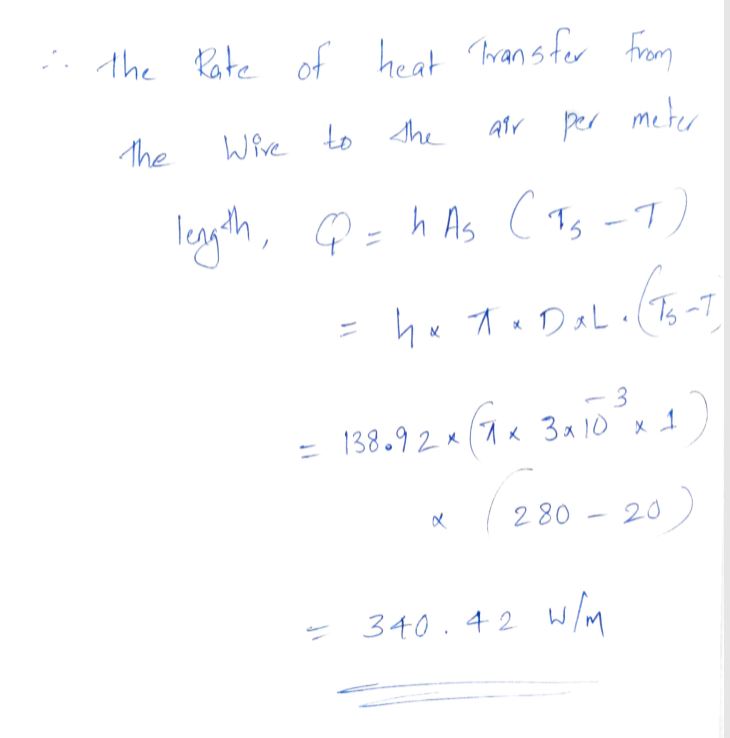 ∴ the Rate of heat Transfer from
the Wire to the air per meter
length, Q = h As (Ts - T)
= h x π x D x L . (Ts - T)
= 138.92 x (π x 3 x 10⁻³ x 1)
x (280 - 20)
= 340.42 W/m